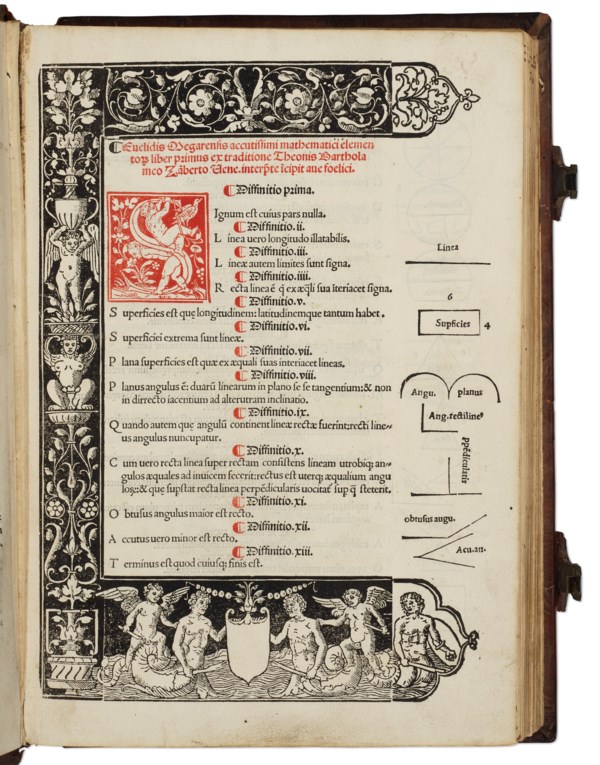 Euclidis Megarensis accutissimi mathematici elemen
toꝝ liber primus ex traditione Theonis Barthola
meo Zāberto Vene. interp̄te īcipit aue foelici.
Diffinitio prima.
SIgnum est cuius pars nulla.
Diffinitio.ii.
Linea uero longitudo illatabilis.
Diffinitio.iii.
Lineæ autem limites sunt signa.
Diffinitio.iiii.
Recta linea ē q̄ ex æq̄li sua īteriacet signa.
Diffinitio.v.
Superficies est quę longitudinem: latitudinemque tantum habet.
Diffinitio.vi.
Superficiei extrema sunt lineæ.
Diffinitio.vii.
Plana superficies est quæ ex æquali suas interiacet lineas.
Diffinitio.viii.
Planus angulus ē: duarū linearum in plano se se tangentium: & non
in dirrecto iacentium ad alterutram inclinatio.
Diffinitio.ix.
Quando autem quę angulū continent lineæ rectæ fuerint: recti line-
us angulus nuncupatur.
Diffinitio.x.
Cum uero recta linea super rectam consistens lineam utrobiq; an-
gulos æquales ad inuicem fecerit: rectus est uterq; æqualium angu
loꝝ: & quę supstat recta linea perpēdicularis uocitaṫ sup q̄ steterit.
Diffinitio.xi.
Obtusus angulus maior est recto.
Diffinitio.xii.
Accutus uero minor est recto.
Diffinitio.xiii.
Terminus est quod cuiusq; finis est.
Linea
6
Supficies 4
Angu. planus
Ang. rectilineꝰ
ppēdicularis
obtusus augu.
Acu. an.